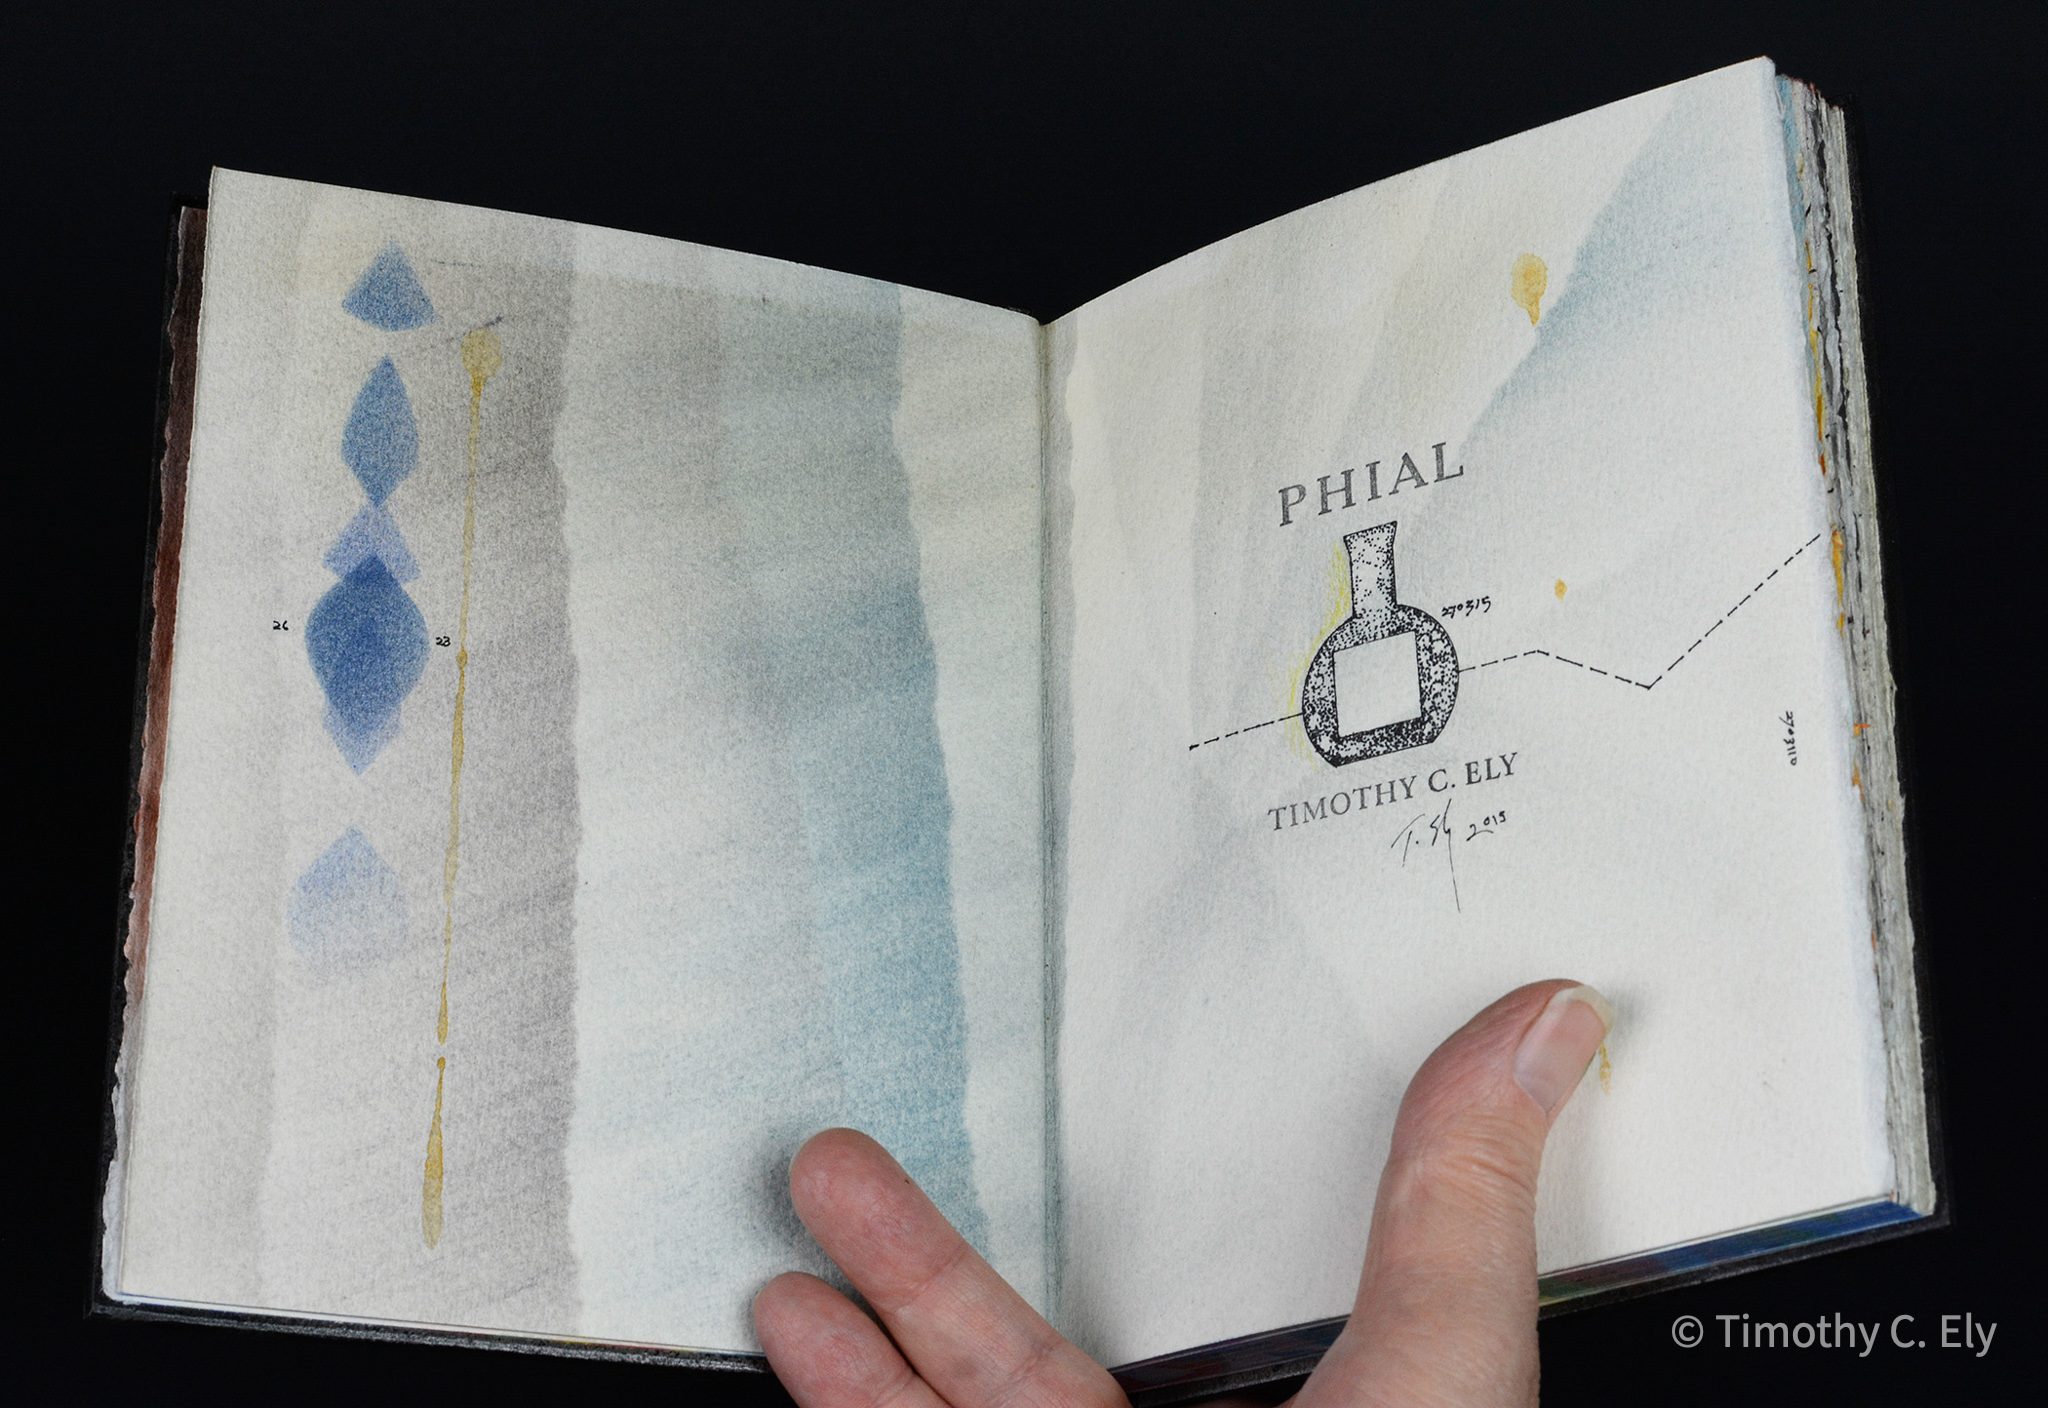 26
23
PHIAL
270315
TIMOTHY C. ELY
T. Ely 2015
© Timothy C. Ely